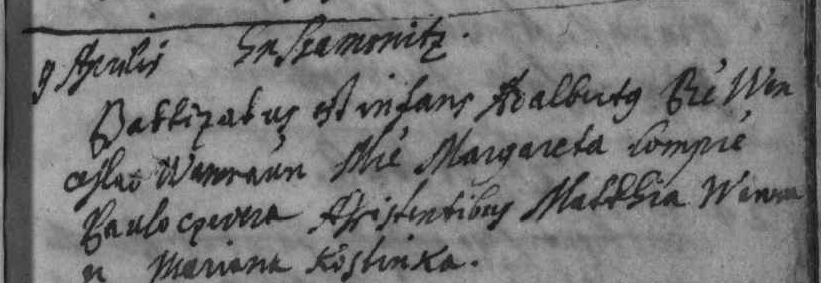 9 Aprilis Ex Sramonitz.
Baptizatus est infans Adalbertg Pre Wen
ceslao Wawraun Mre Margareta Compre
Paulo Assistentibus Matthia Wawra
u Mariana Kostinka.